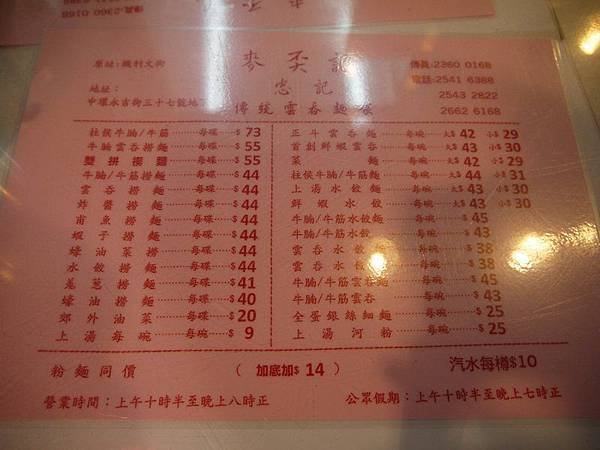 傳真:2360 0168
原址:機利文街
麥奀記
傳真:2360 0168
忠記
電話:2541 6388
地址:
2543 2822
中環永吉街三十七號地下
傳統雲吞麵家
2662 6168
柱侯牛腩/牛筋……每碟……$ 73
牛腩雲吞撈麵……每碟……$ 55
雙拼撈麵……每碟……$ 55
牛腩/牛筋撈麵……每碟……$ 44
雲吞撈麵……每碟……$ 44
炸醬撈麵……每碟……$ 44
甫魚撈麵……每碟……$ 44
蝦子撈麵……每碟……$ 44
蠔油菜撈麵……每碟……$ 44
水餃撈麵……每碟……$ 44
羗葱撈麵……每碟……$ 41
蠔油撈麵……每碟……$ 40
郊外油菜……每碟……$ 20
上湯每碗……每碗……$ 9
正斗雲吞麵……每碗……大$ 42 小$ 29
首創鮮蝦雲吞……每碗……大$ 43 小$ 30
菜麵……每碗……大$ 42 小$ 29
柱侯牛腩/牛筋麵……每碗……大$ 44 小$ 31
上湯水餃麵……每碗……大$ 43 小$ 30
鮮蝦水餃……每碗……大$ 43 小$ 30
牛腩/牛筋水餃麵……每碗……$ 45
牛腩/牛筋水餃……每碗……$ 43
雲吞水餃麵……每碗……$ 38
雲吞水餃……每碗……$ 38
牛腩/牛筋雲吞麵……每碗……$ 45
牛腩/牛筋雲吞……每碗……$ 43
全蛋銀絲細麵……每碗……$ 25
上湯河粉……每碗……$ 25
粉麵同價
( 加底加$ 14 )
汽水每樽$10
營業時間:上午十時半至晚上八時正
公眾假期:上午十時半至晚上七時正